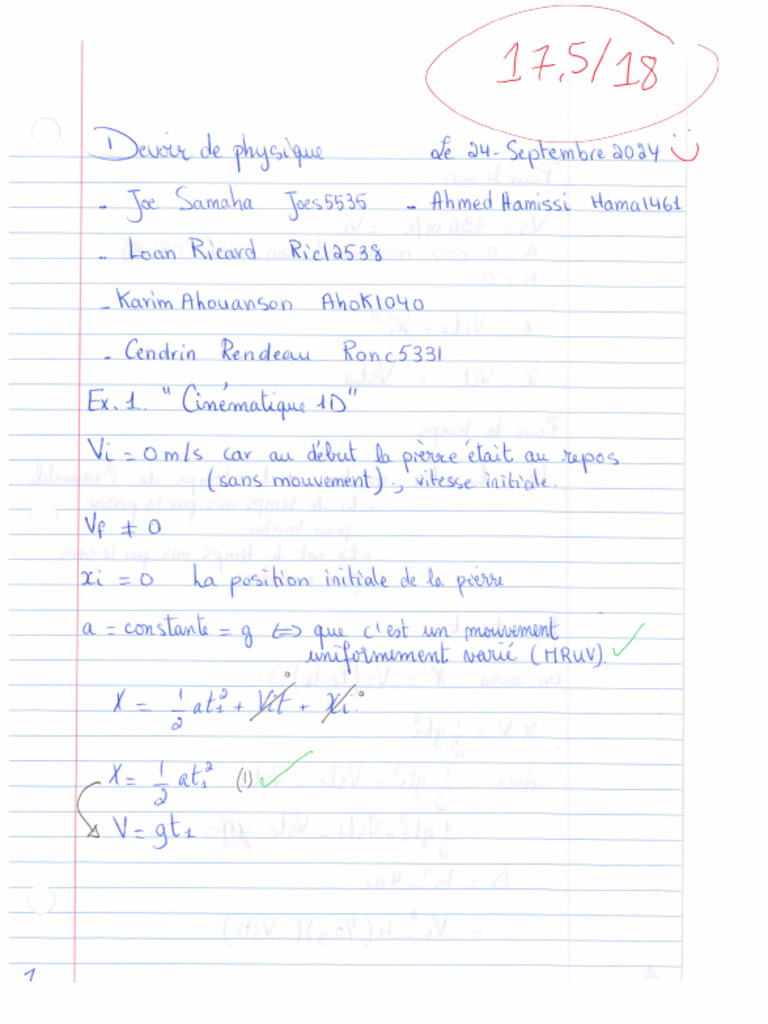 17,5/18
Devoir de physique Le 24-Septembre 2024
- Joe Samaha Joes5535 - Ahmed Hamissi Hama1461
- Loan Ricard Ric12538
- Karim Ahouanson AhoK1040
- Cendrin Rendeau Ronc5331
Ex.1. "Cinématique 1D"
Vi = 0 m/s car au début la pierre était au repos
(sans mouvement)., vitesse initiale.
Vf ≠ 0
xi = 0 La position initiale de la pierre
a = constante = g ⇔ que c'est un mouvement
uniformement varié (MRUV).
X = 1/2 at₁² + Vit + Xi
X = 1/2 at₁² (1)
V = gt₁
1